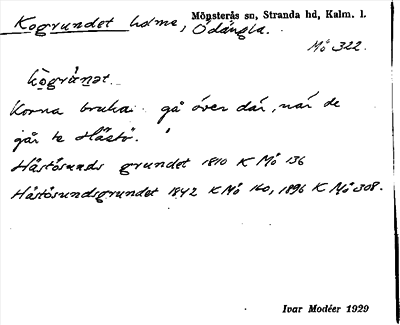 Kogrundet holme, Mönsterås sn, Stranda hd, Kalm. l.
Ödängla.
Mö 322.
kògrùnət
Korna bruka gå över där, när de
går te Håstö.
Håstösunds grundet 1810 K Mö 136
Håstösundsgrundet 1842 K Mö 160, 1896 K Mö 308.
Ivar Modéer 1929